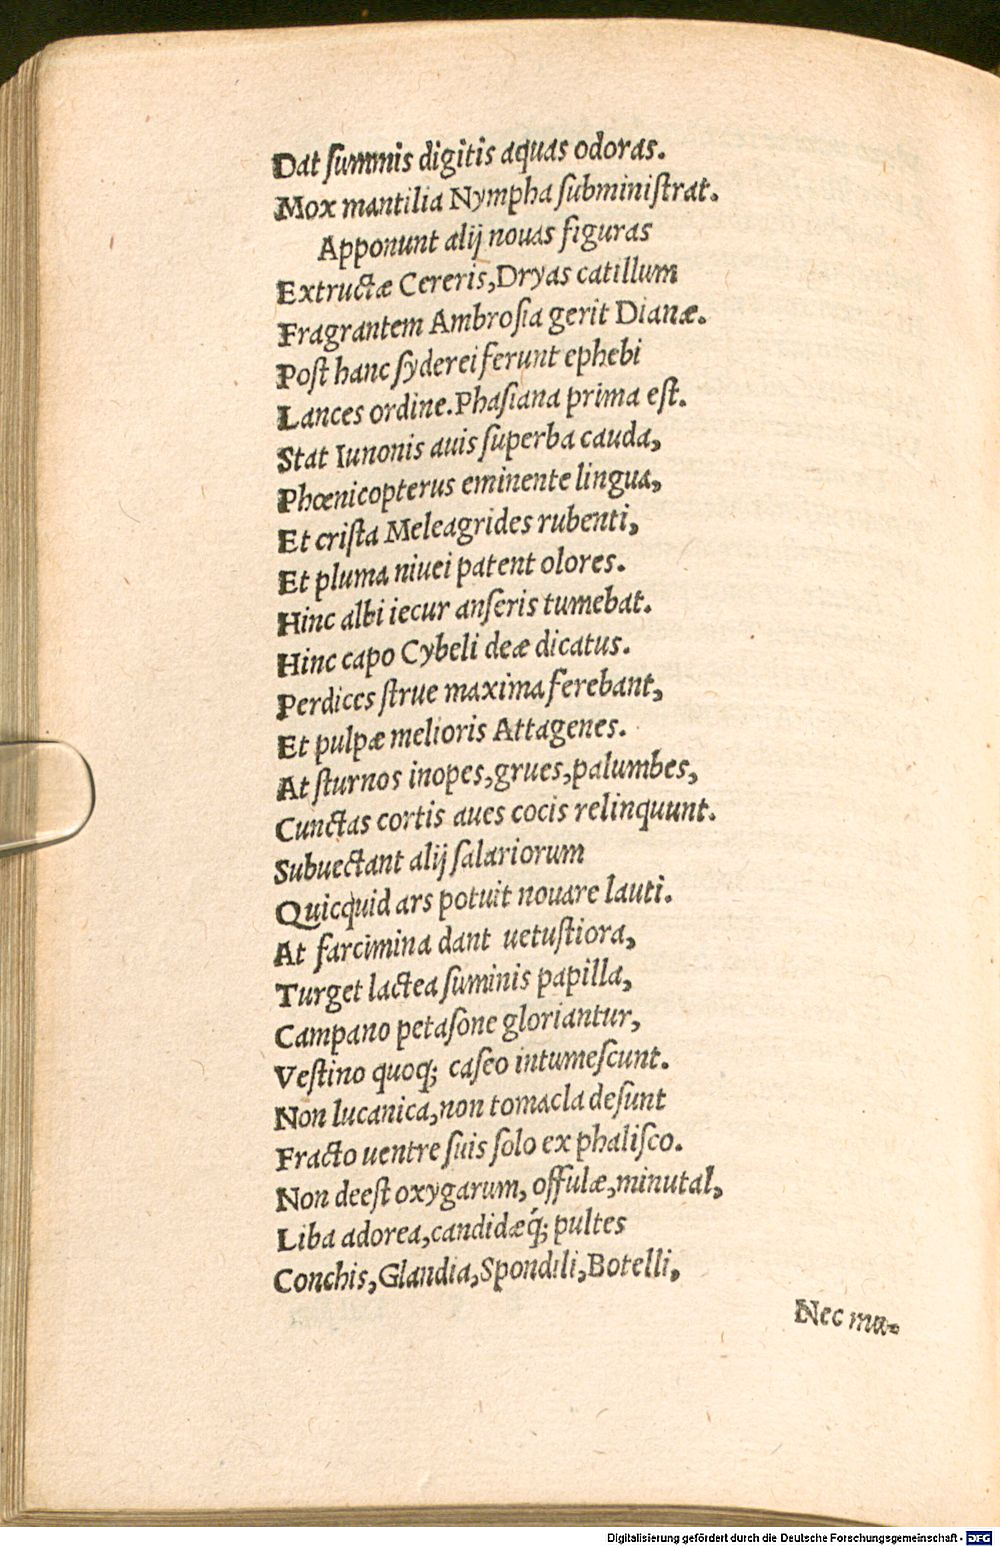 Dat ſummis digitis aquas odoras.
Mox mantilia Nympha ſubminiſtrat.
Apponunt alij nouas figuras
Extructæ Cereris,Dryas catillum
Fragrantem Ambroſia gerit Dianæ.
Poſt hanc ſyderei ferunt ephebi
Lances ordine.Phaſiana prima eſt.
Stat Iunonis auis ſuperba cauda,
Phœnicopterus eminente lingua,
Et criſta Meleagrides rubenti,
Et pluma niuei patent olores.
Hinc albi iecur anſeris tumebat.
Hinc capo Cybeli deæ dicatus.
Perdices ſtrue maxima ferebant,
Et pulpæ melioris Attagenes.
At ſturnos inopes,grues,palumbes,
Cunctas cortis aues cocis relinquunt.
Subuectant alij ſalariorum
Quicquid ars potuit nouare lauti.
At farcimina dant uetuſtiora,
Turget lactea ſuminis papilla,
Campano petaſone gloriantur,
Veſtino quoq; caſeo intumeſcunt.
Non lucanica,non tomacla deſunt
Fracto uentre ſuis ſolo ex phaliſco.
Non deeſt oxygarum, offulæ,minutal,
Liba adorea,candidæq́; pultes
Conchis,Glandia,Spondili,Botelli,
Nec ma-
Digitalisierung gefördert durch die Deutsche Forschungsgemeinschaft - DFG